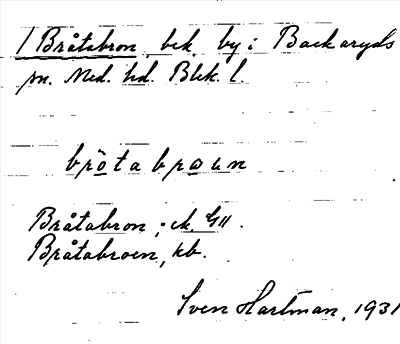 / Bråtabron, bek. by i Backaryds
sn. Med. hd. Blek. l.
bròtabrωun
Bråtabron, ek. GII.
Bråtabroen, kb.
Sven Hartman, 1931